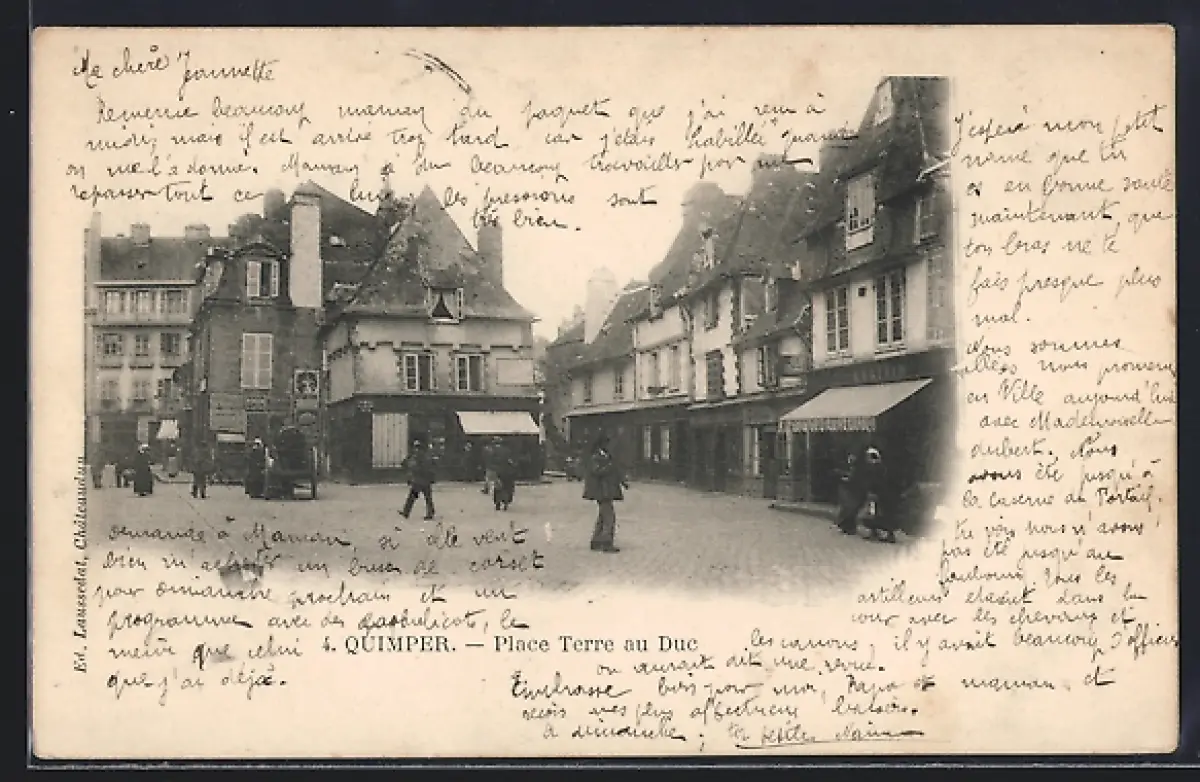 Ma chère Jeannette
Remercie beaucoup maman du paquet que j'ai reçu à
midi; mais il est arrivé trop tard car j'étais habillée quand
on me l'a donné. Maman a dû beaucoup travailler pour me
repasser tout ce linge, les sont
très bien.
J'espère mon petit
que tu
es en bonne santé
maintenant, que
ton bras ne te
fais presque plus
mal.
Nous sommes
allées nous promener
en Ville aujourd'hui
avec Mademoiselle
Aubert. Nous
avons été jusqu'à
la caserne du
tu vois nous n'avons
pas été jusqu'au
Tous les
artilleurs étaient dans la
cour avec les chevaux et
les canons, il y avait beaucoup d'officiers
on aurait dit une revue.
Embrasse bien pour moi, Papa et maman, et
reçois mes plus affectueux baisers.
A dimanche, ta petite
Demande à Maman, si elle veut
bien m'acheter un busc de corset
pour dimanche prochain et un
programme avec des, le
même que celui
que j'ai déjà.
4. QUIMPER. — Place Terre au Duc
Ed. Laussedat, Châteaudun